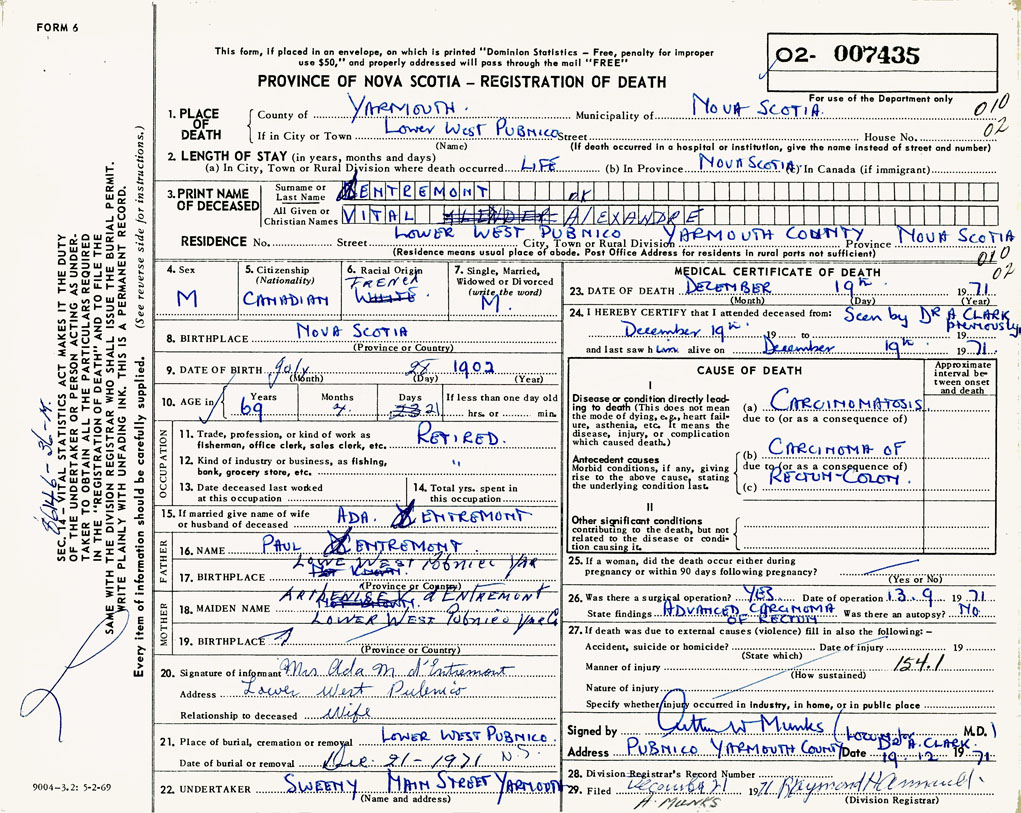 FORM 6
This form, if placed in an envelope, on which is printed "Dominion Statistics – Free, penalty for improper
use $50," and properly addressed will pass through the mail "FREE"
O2- 007435
PROVINCE OF NOVA SCOTIA – REGISTRATION OF DEATH
For use of the Department only
1. PLACE OF DEATH
County of YARMOUTH. Municipality of NOVA SCOTIA. 010
If in City or Town LOWER WEST PUBNICO Street House No. 02
(Name) (If death occurred in a hospital or institution, give the name instead of street and number)
2. LENGTH OF STAY (in years, months and days)
(a) In City, Town or Rural Division where death occurred LIFE (b) In Province NOVA SCOTIA (c) In Canada (if immigrant)
3. PRINT NAME OF DECEASED
Surname or Last Name D'ENTREMONT OK
All Given or Christian Names VITAL ALEXANDRE
RESIDENCE No. Street LOWER WEST PUBNICO City, Town or Rural Division YARMOUTH COUNTY Province NOVA SCOTIA
(Residence means usual place of abode. Post Office Address for residents in rural parts not sufficient) 010
02
4. Sex
M
5. Citizenship
(Nationality)
CANADIAN
6. Racial Origin
FRENCH
WHITE
7. Single, Married,
Widowed or Divorced
(write the word)
M.
8. BIRTHPLACE NOVA SCOTIA
(Province or Country)
9. DATE OF BIRTH July 28 1902
(Month) (Day) (Year)
10. AGE in Years 69 Months 4 Days 23 21 If less than one day old
hrs. or min.
OCCUPATION
11. Trade, profession, or kind of work as
fisherman, office clerk, sales clerk, etc. RETIRED.
12. Kind of industry or business, as fishing,
bank, grocery store, etc. "
13. Date deceased last worked
at this occupation
14. Total yrs. spent in
this occupation
15. If married give name of wife
or husband of deceased ADA. D'ENTREMONT
FATHER
16. NAME PAUL D'ENTREMONT
LOWE WEST Pubnico Yar
17. BIRTHPLACE NOT KNOWN
(Province or Country)
MOTHER
18. MAIDEN NAME d'ENTREMONT
NOT KNOWN
LOWER WEST Pubnico Yar Co
19. BIRTHPLACE
(Province or Country)
20. Signature of informant Mrs Ada M. d'Entremont
Address Lower West Pubnico
Relationship to deceased Wife
21. Place of burial, cremation or removal LOWER WEST PUBNICO.
Date of burial or removal Dec. 21 - 1971 N.S.
22. UNDERTAKER SWEENY MAIN STREET YARMOUTH
(Name and address)
MEDICAL CERTIFICATE OF DEATH
23. DATE OF DEATH DECEMBER 19th 1971
(Month) (Day) (Year)
24. I HEREBY CERTIFY that I attended deceased from: Seen by DR A CLARK
previously
December 19th 19 to 19
and last saw him alive on December 19th 1971
CAUSE OF DEATH
Approximate
interval be-
tween onset
and death
I
Disease or condition directly lead-
ing to death (This does not
mean the mode of dying, e.g., heart fail-
ure, asthenia, etc. It means the
disease, injury, or complication
which caused death.)
(a) CARCINOMATOSIS.
due to (or as a consequence of)
Antecedent causes
Morbid conditions, if any, giving
rise to the above cause, stating
the underlying condition last.
(b) CARCINOMA OF
due to (or as a consequence of)
(c) RECTUM-COLON.
II
Other significant conditions
contributing to the death, but not
related to the disease or condi-
tion causing it.
25. If a woman, did the death occur either during
pregnancy or within 90 days following pregnancy?
(Yes or No)
26. Was there a surgical operation? YES Date of operation 13.9 1971
State findings ADVANCED CARCINOMA
OF RECTUM Was there an autopsy? NO
27. If death was due to external causes (violence) fill in also the following: –
Accident, suicide or homicide? Date of injury 19
(State which)
Manner of injury 154.1
(How sustained)
Nature of injury
Specify whether injury occurred in industry, in home, or in public place
Signed by Arthur W Munks (Locum for M.D.)
DR A. CLARK.
Address PUBNICO YARMOUTH COUNTY Date 19.12 1971
28. Division Registrar's Record Number
29. Filed December 21 1971
A. MUNKS (Division Registrar)
SEC. 14 – VITAL STATISTICS ACT MAKES IT THE DUTY
OF THE UNDERTAKER OR PERSON ACTING AS UNDER-
TAKER TO OBTAIN ALL THE PARTICULARS REQUIRED
IN THE "REGISTRATION OF DEATH" AND TO FILE THE
SAME WITH THE DIVISION REGISTRAR WHO SHALL ISSUE THE BURIAL PERMIT.
WRITE PLAINLY WITH UNFADING INK. THIS IS A PERMANENT RECORD.
Every item of information should be carefully supplied. (See reverse side for instructions.)
9004-3.2: 5-2-69